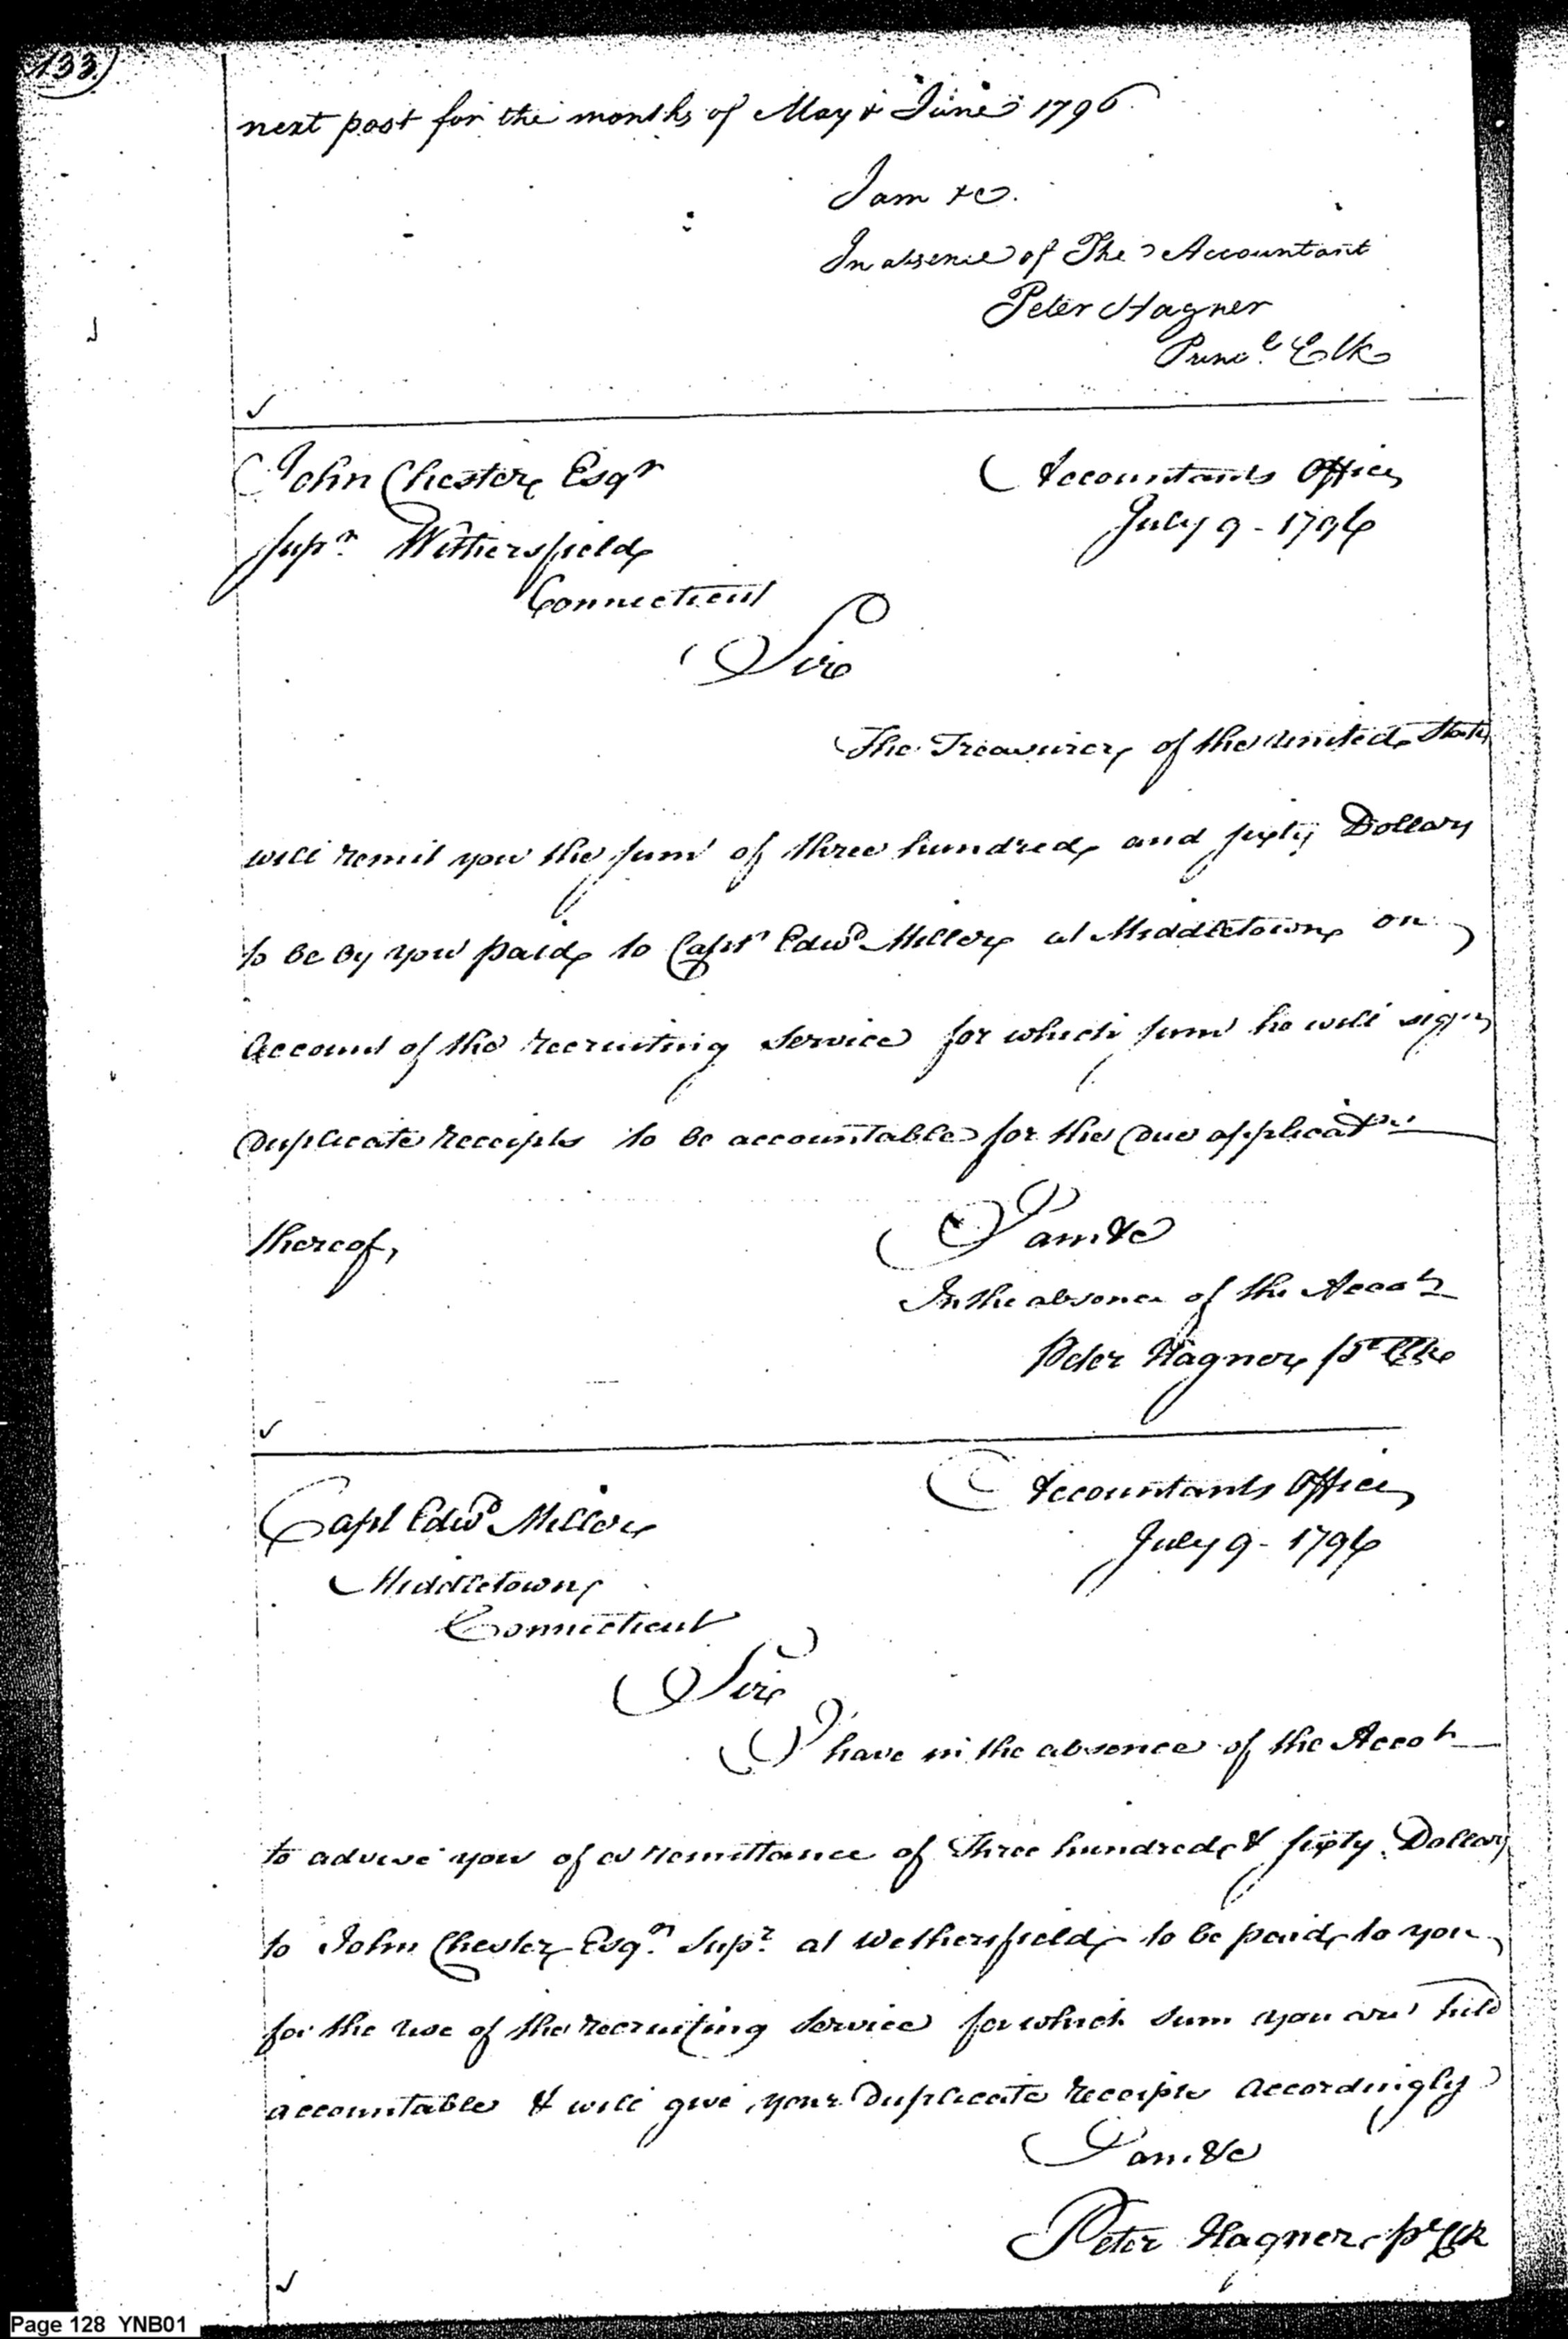 133
next post for the months of May & June 1796
I am &c.
In absence of The Accountant
Peter Hagner
Princl. Clk
John Chester Esqr
Accountants Office
July 9 - 1796
Supr Withersfield
Connecticut
Sir
The Treasurer of the United States
will remit you the sum of three hundred and sixty Dollars
to be by you paid to Capt Edwd Miller at Middletown on
Account of the recruiting service for which sum he will sign
Duplicate receipts to be accountable for the Due applicatn
thereof,
I am &c
In the absence of the Accot
Peter Hagner pl Clk
Capt Edwd Miller
Accountants Office
July 9 - 1796
Middletown
Connecticut
Sir
I have in the absence of the Accot
to advise you of a remittance of Three hundred & sixty Dollars
to John Chester Esqr. Supr. at Wethersfield to be paid to you
for the use of the recruiting service for which sum you are held
accountable & will give your Duplicate receipts accordingly
I am &c
Peter Hagner pl Clk
Page 128 YNB01